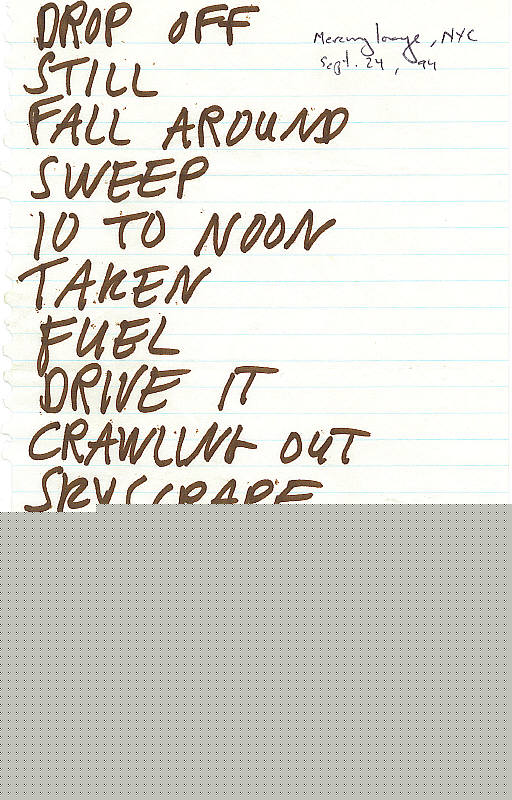 DROP OFF
Mercury lounge, NYC
Sept. 24, 94
STILL
FALL AROUND
SWEEP
10 TO NOON
TAKEN
FUEL
DRIVE IT
CRAWLING OUT